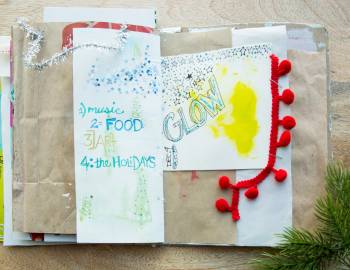 1) music
2= FOOD
3) ART
4: the HOLiDAYS
GLOW